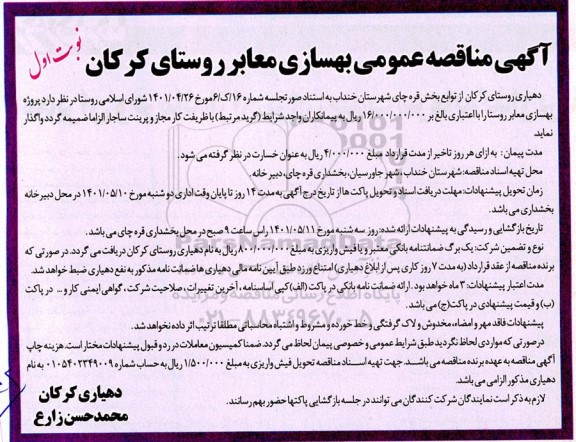 آگهی مناقصه عمومی بهسازی معابر روستای کرکان
نوبت اول
دهیاری روستای کرکان از توابع بخش قره چای شهرستان خنداب به استناد صورتجلسه شماره ۱۶/ک/۶ مورخ ۱۴۰۱/۰۴/۲۶ شورای اسلامی روستا در نظر دارد پروژه
بهسازی معابر روستا را با اعتباری بالغ بر ۱۶/۰۰۰/۰۰۰/۰۰۰ ریال به پیمانکاران واجد شرایط (گرید مرتبط) با ظرفیت کار مجاز و پرینت ساجار الزاما ضمیمه گردد واگذار
نماید
مدت پیمان: به ازای هر روز تاخیر از مدت قرارداد مبلغ ۴/۰۰۰/۰۰۰ ریال به عنوان خسارت در نظر گرفته می شود.
محل تهیه اسناد مناقصه: شهرستان خنداب، شهر جاورسیان، بخشداری قره چای، دبیرخانه
زمان تحویل پیشنهادات: مهلت دریافت اسناد و تحویل پاکت ها از تاریخ درج آگهی به مدت ۱۴ روز تا پایان وقت اداری دو شنبه مورخ ۱۴۰۱/۰۵/۱۰ در محل دبیرخانه
بخشداری می باشد.
تاریخ بازگشایی و رسیدگی به پیشنهادات ارائه شده: روز سه شنبه مورخ ۱۴۰۱/۰۵/۱۱ راس ساعت ۹ صبح در محل بخشداری قره چای می باشد.
نوع و تضمین شرکت: یک برگ ضمانتنامه بانکی معتبر و یا فیش واریزی به مبلغ ۸۰۰/۰۰۰/۰۰۰ ریال به نام دهیاری روستای کرکان دریافت می گردد. در صورتی که
برنده مناقصه از عقد قرارداد (به مدت ۷ روز کاری پس از ابلاغ دهیاری) امتناع ورزد طبق آیین نامه مالی دهیاری ها ضمانت نامه مذکور به نفع دهیاری ضبط خواهد شد.
مدت اعتبار پیشنهادات: ۳ ماه خواهد بود. ارائه ضمانت نامه بانکی در پاکت (الف) کپی اساسنامه، آخرین تغییرات، صلاحیت شرکت، گواهی ایمنی کار و ... در پاکت
(ب) و قیمت پیشنهادی در پاکت (ج) می باشد.
پیشنهادات فاقد مهر و امضاء، مخدوش و لاک گرفتگی و خط خورده و مشروط و اشتباه محاسباتی مطلقا ترتیب اثر داده نخواهد شد.
در صورتی که مواردی لحاظ نگردید طبق شرایط عمومی و خصوصی پیمان لحاظ می گردد. ضمنا کمیسیون معاملات در رد و قبول پیشنهادات مختار است. هزینه چاپ
آگهی مناقصه به عهده برنده مناقصه می باشد. جهت تهیه اسناد مناقصه تحویل فیش واریزی به مبلغ ۱/۵۰۰/۰۰۰ ریال به حساب شماره ۰۱۰۵۴۰۲۳۴۹۰۰۹ به نام
دهیاری مذکور الزامی می باشد.
لازم به ذکر است نمایندگان شرکت کنندگان می توانند در جلسه بازگشایی پاکتها حضور بهم رسانند.
دهیاری کرکان
محمدحسن زارع
ParsNamadData
پایگاه اطلاع رسانی مناقصه و مزایده
۰۲۱-۸۸۳۴۹۶۷۰-۵